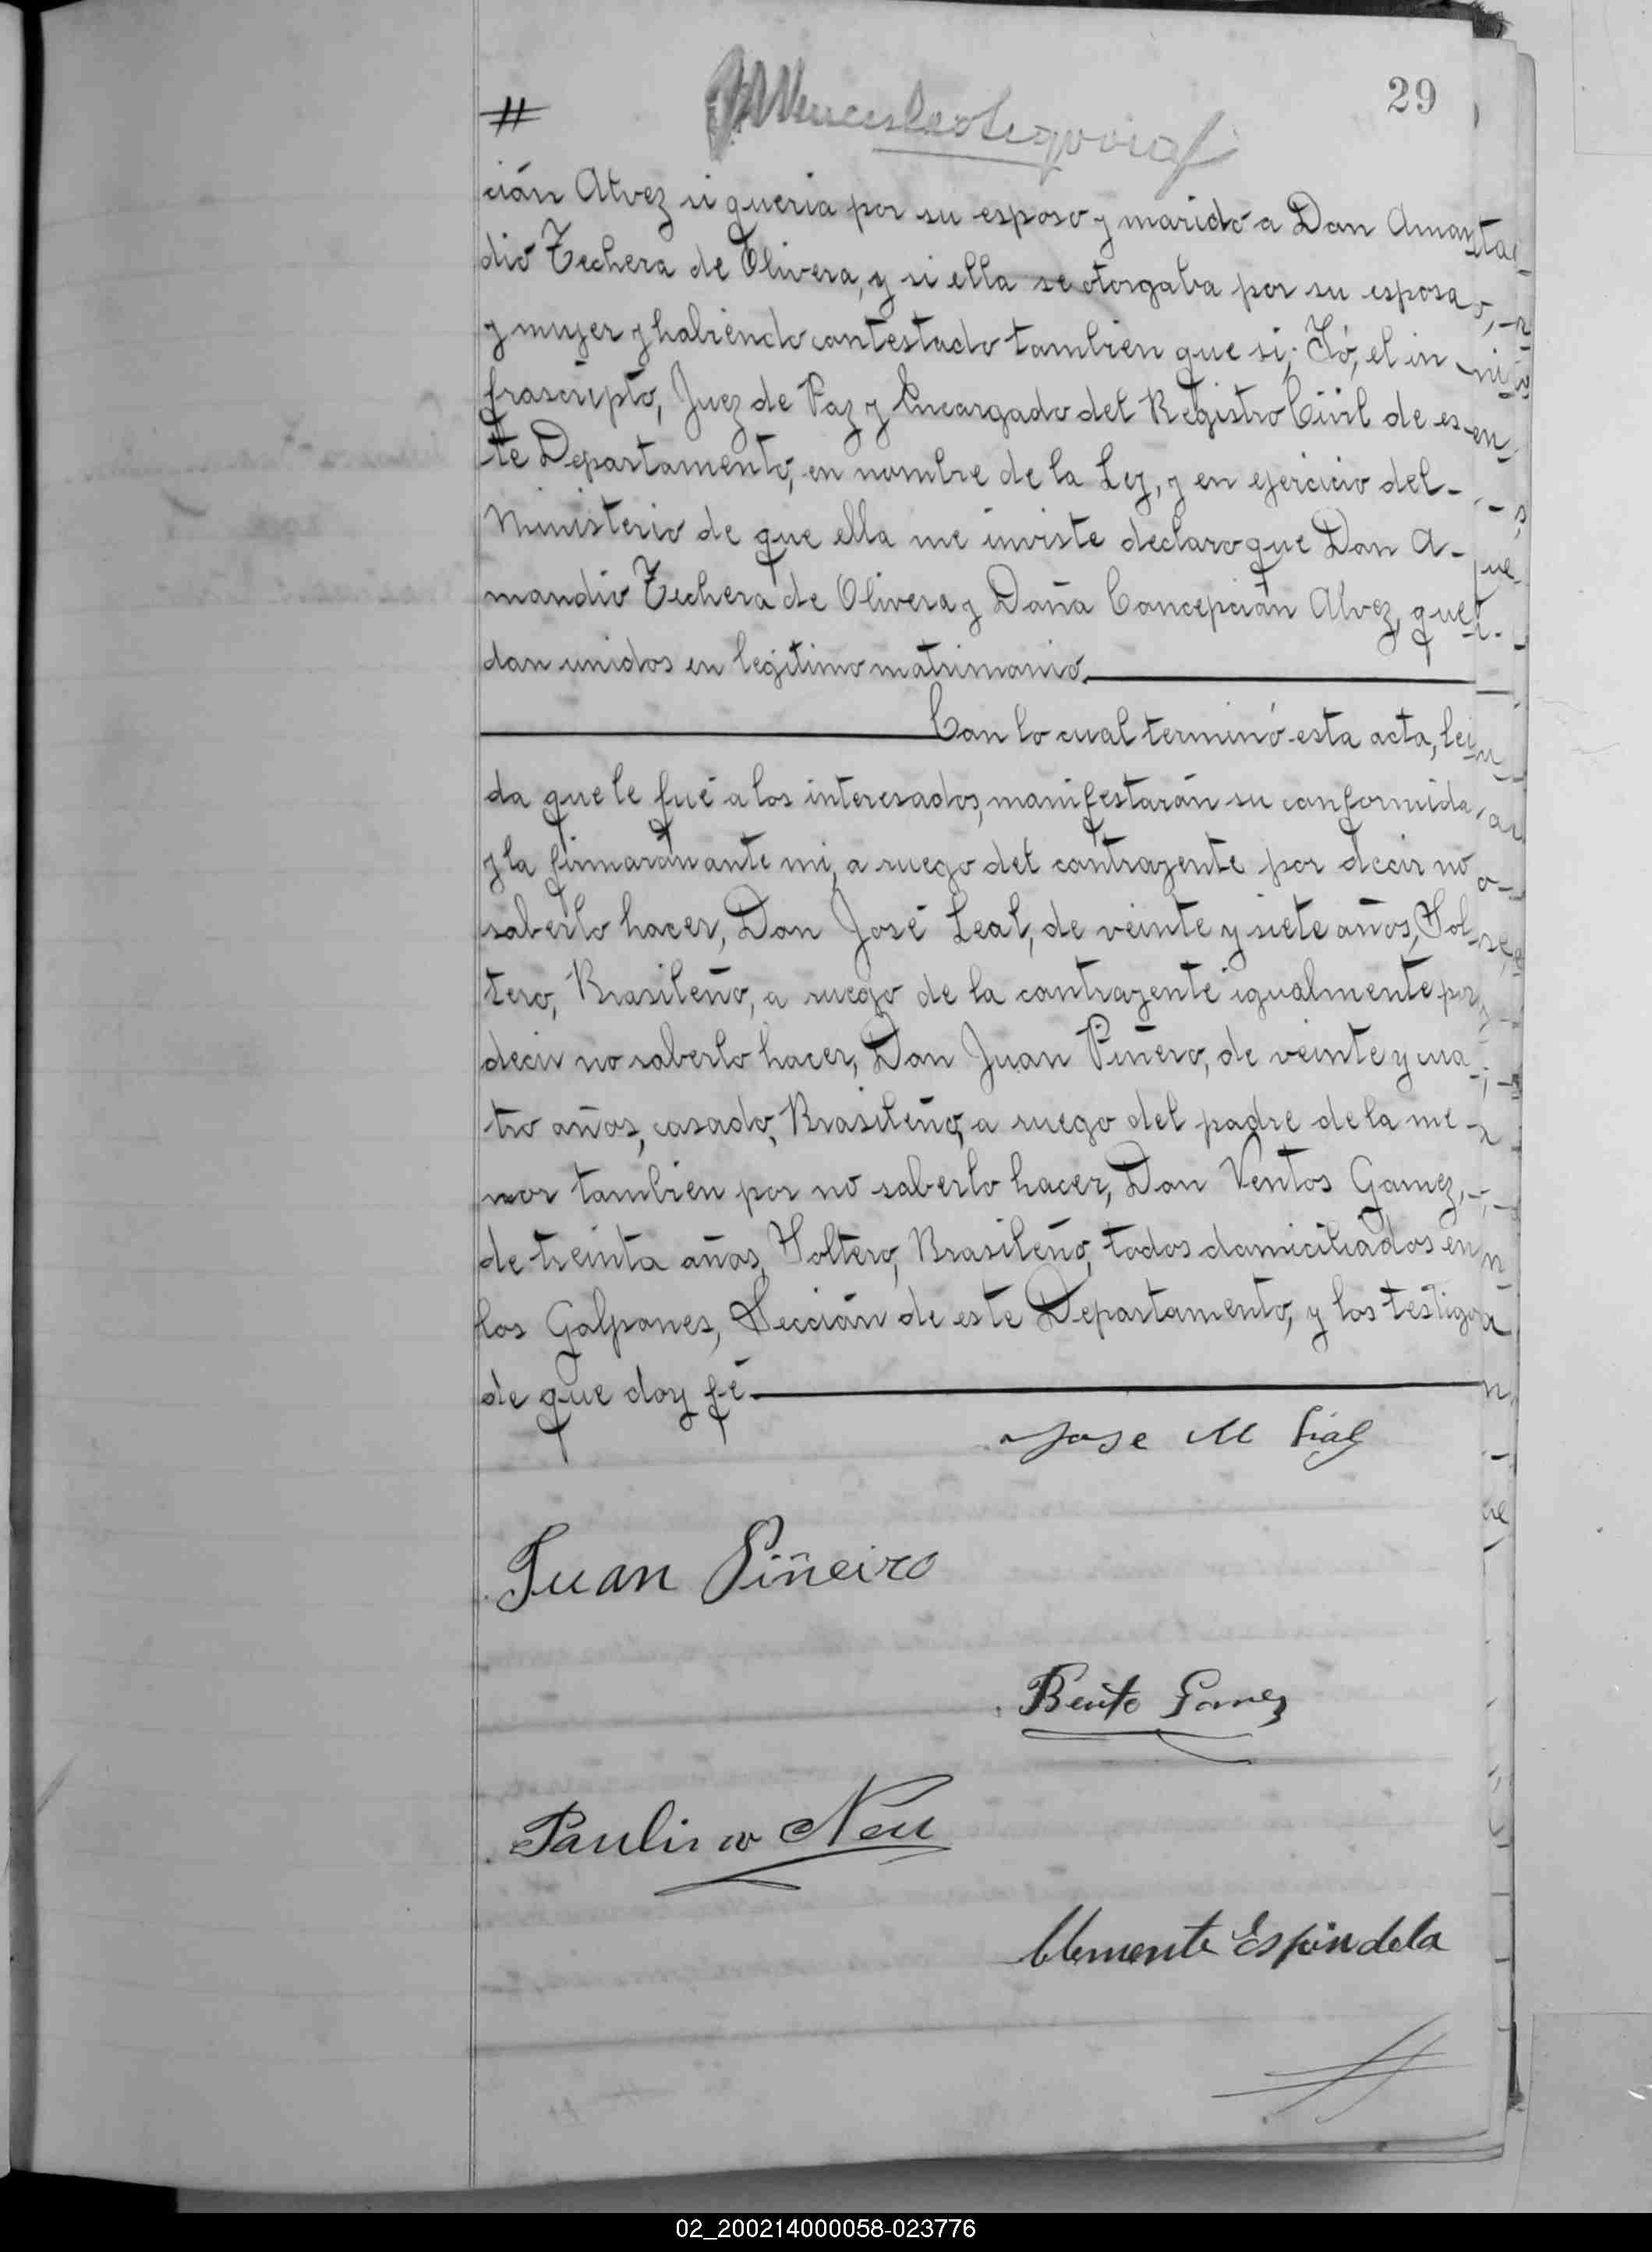 29
#
Wenceslao Segovia
ción Alvez si queria por su esposo y marido a Don Aman
dio Techera de Olivera, y si ella se otorgaba por su esposa
y mujer y habiendo contestado tambien que si; Yó, el in
frascripto, Juez de Paz y Encargado del Registro Civil de es
te Departamento, en nombre de la Ley, y en ejercicio del-
Ministerio de que ella me inviste declaro que Don A-
mandio Techera de Olivera y Doña Concepción Alvez, que
dan unidos en legítimo matrimonio.
Con lo cual terminó esta acta, lei
da que le fué a los interesados, manifestarón su conformida
y la firmarón ante mi, a ruego del contrayente por decir no
saberlo hacer, Don José Leal, de veinte y siete años, Sol
tero, Brasileño, a ruego de la contrayente igualmente por
decir no saberlo hacer, Don Juan Piñero, de veinte y cua
tro años, casado, Brasileño, a ruego del padre de la me
nor tambien por no saberlo hacer, Don Ventos Gamez,
de treinta años, Soltero, Brasileño, todos domiciliados en
los Galpones, Sección de este Departamento, y los testigos
de que doy fé
Jose M Lial
Juan Piñeiro
Bento Gomez
Paulino Neu
Clemente Espindola
02_200214000058-023776